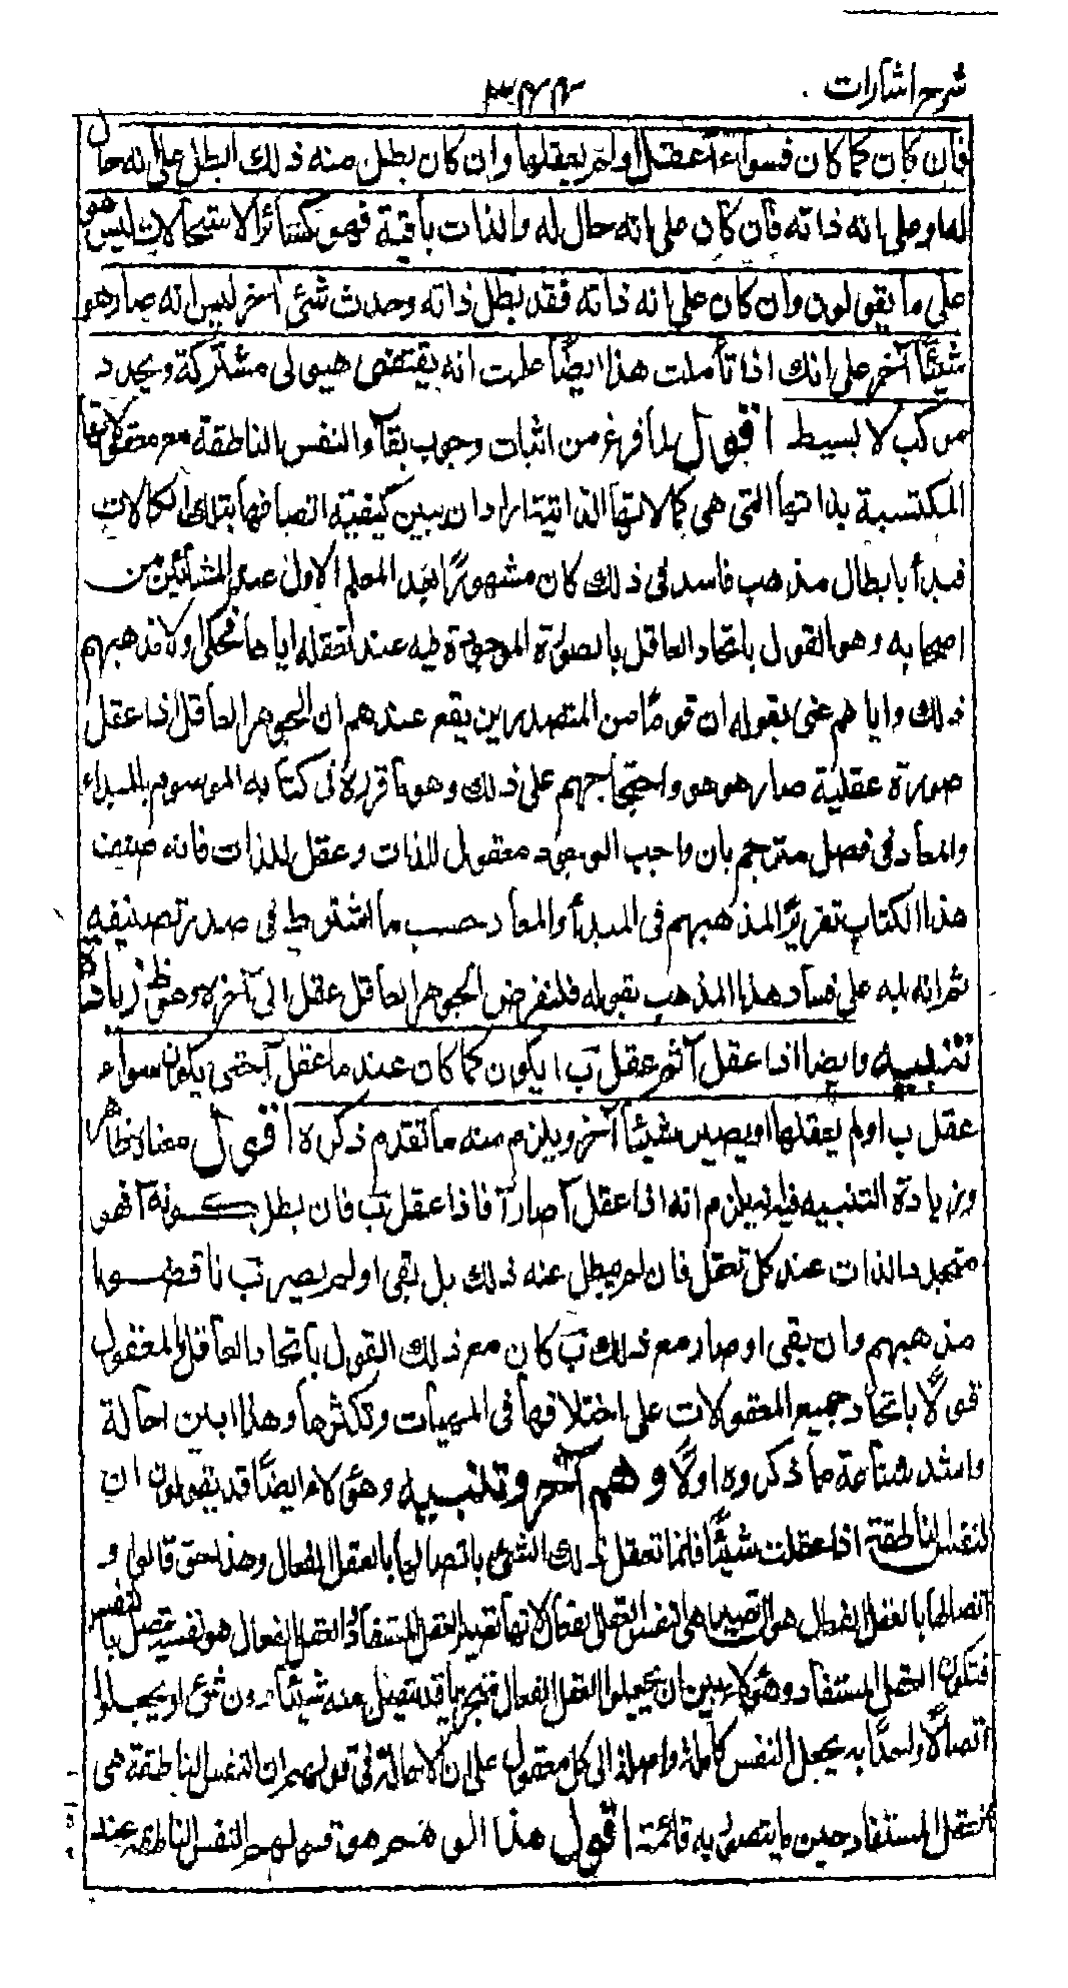 شرح اشارات
٣٤٤
فان كان كما كان فسواء أعقل ا اولم يعقلها وان كان بطل منه ذلك ابطل على انه حال
لها وعلى انه ذاته فان كان على انه حال له والذات باقية فهو كسائر الاستحالات ليس هو
على ما يقولون وان كان على انه ذاته فقد بطل ذاته وحدث شئ آخر ليس انه صار هو
شيئا آخر على انك اذا تأملت هذا ايضا علمت انه يقتضى هيولى مشتركة وتجدد
مركب لا بسيط اقول لما فرغ من اثبات وجوب بقاء النفس الناطقة مع معقولاتها
المكتسبة بذاتها التى هى كمالاتها الذاتية اراد ان يبين كيفية اتصافها بتلك الكمالات
فبدأ بابطال مذهب فاسد فى ذلك كان مشهورًا بعد المعلم الاول عند المشائين من
اصحابه وهو القول باتحاد العاقل بالصورة الموجودة فيه عند تعقله اياها فحكى اولا مذهبهم
ذلك واياهم عنى بقوله ان قومًا من المتصدرين يقع عندهم ان الجوهر العاقل اذا عقل
صورة عقلية صار هو هو واحتجاجهم على ذلك وهو ما قرره فى كتابه الموسوم بالمبداء
والمعاد فى فصل مترجم بان واجب الوجود معقول الذات وعقل الذات فانه صنف
هذا الكتاب تقريرًا لمذهبهم فى المبدأ والمعاد حسب ما اشترط فى صدر تصنيفه
ثم انه نبه على فساد هذا المذهب بقوله فلنفرض الجوهر العاقل عقل ا الى آخره وهو ظ زيادة
تنبيه وايضا اذا عقل آ ثم عقل ب ايكون كما كان عند ما عقل آ حتى يكون سواء
عقل ب اولم يعقلها او يصير شيئا آخر ويلزم منه ما تقدم ذكره اقول معناه ظاهر
وزيادة التنبيه فيه انه يلزم انه اذا عقل آ صار آ فاذا عقل ب فان بطل كونه آ فهو
متجدد الذات عند كل تعقل فان لم يبطل عنه ذلك بل بقى ا ولم يصير ب ناقضوا
مذهبهم وان بقى ا وصار مع ذلك ب كان مع ذلك القول باتحاد العاقل والمعقول
قولًا باتحاد جميع المعقولات على اختلافها فى المهيات وتكثرها وهذا ابين احالة
واشد شناعة مما ذكروه اولًا وهم آخر وتنبيه وهؤلاء ايضًا قد يقولون ان
النفس الناطقة اذا عقلت شيئًا فانما تعقل ذلك الشئ باتصالها بالعقل الفعال وهذا حق قالوا و
اتصالها بالعقل الفعال هو ان تصير هى نفس العقل الفعال لانها تصير العقل المستفاد والعقل الفعال هو نفسه يتصل بالنفس
فتكون العقل المستفاد وهؤلاء بين ان يجعلوا العقل الفعال متجزيا قد يتصل منه شيئا دون شئ او يجعلوا
اتصالًا واحدًا به يجعل النفس كاملة واصلة الى كل معقول على ان الاحالة فى قولهم ان النفس الناطقة هى
العقل المستفاد حين ما يتصور به قائمة اقول هذا الوهم هو قولهم النفس الناطقة عند